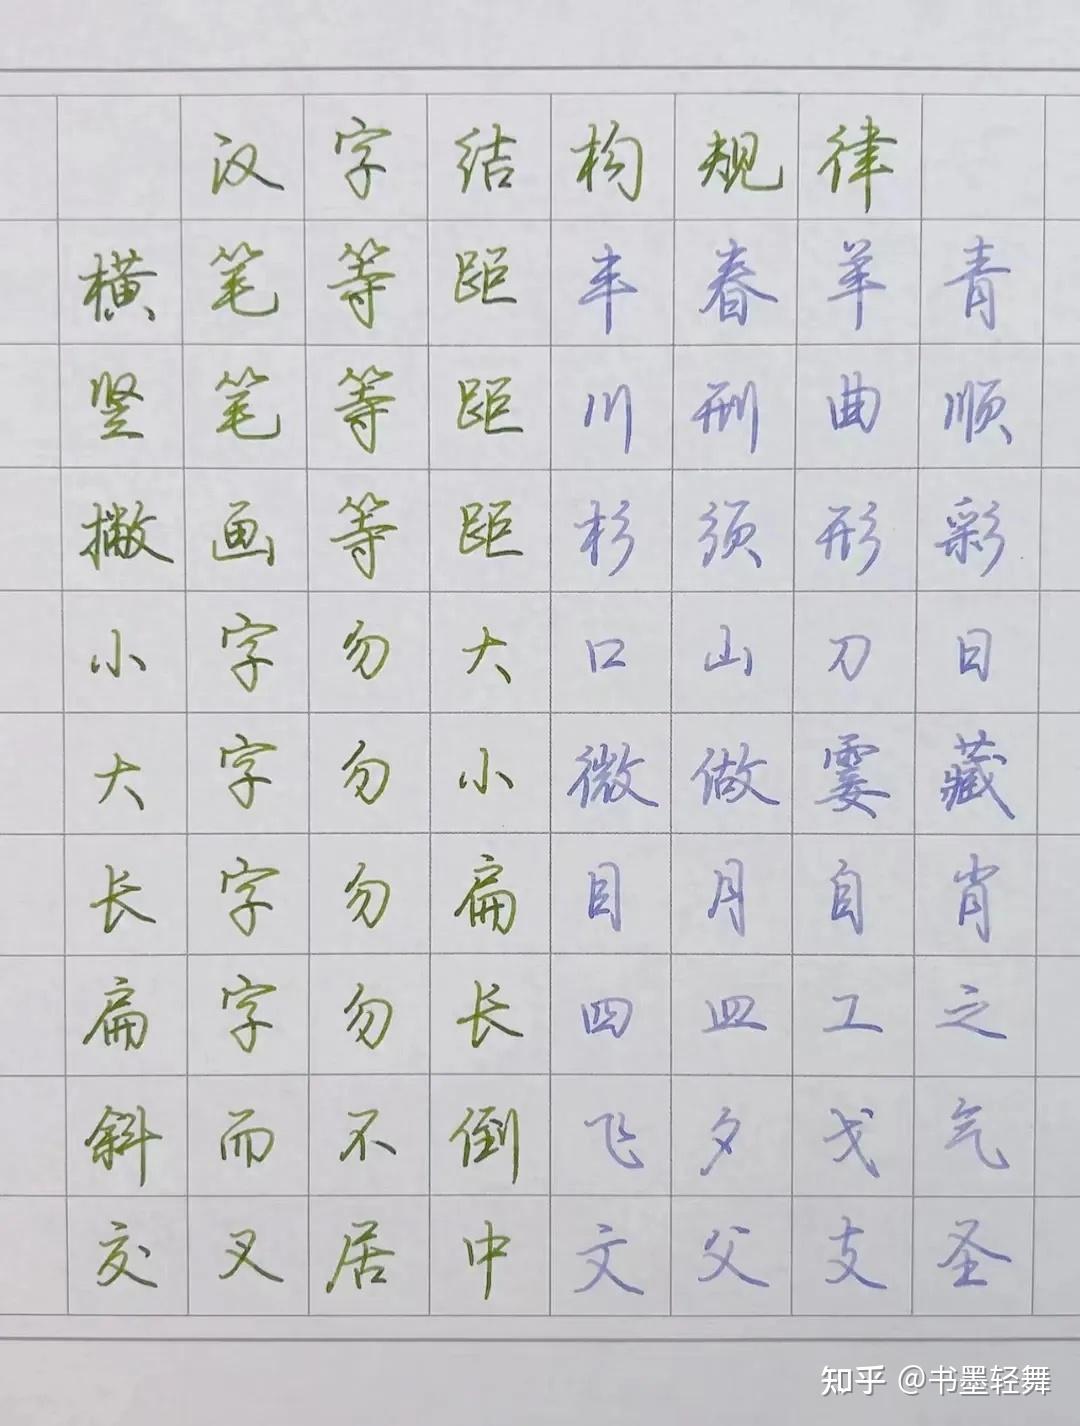 汉字结构规律
横笔等距丰春羊青
竖笔等距川刑曲顺
撇画等距杉须形彩
小字勿大口山刀日
大字勿小微做霎藏
长字勿扁目月自肖
扁字勿长四皿工之
斜而不倒飞夕戈气
交叉居中文父支圣
知乎 @书墨轻舞